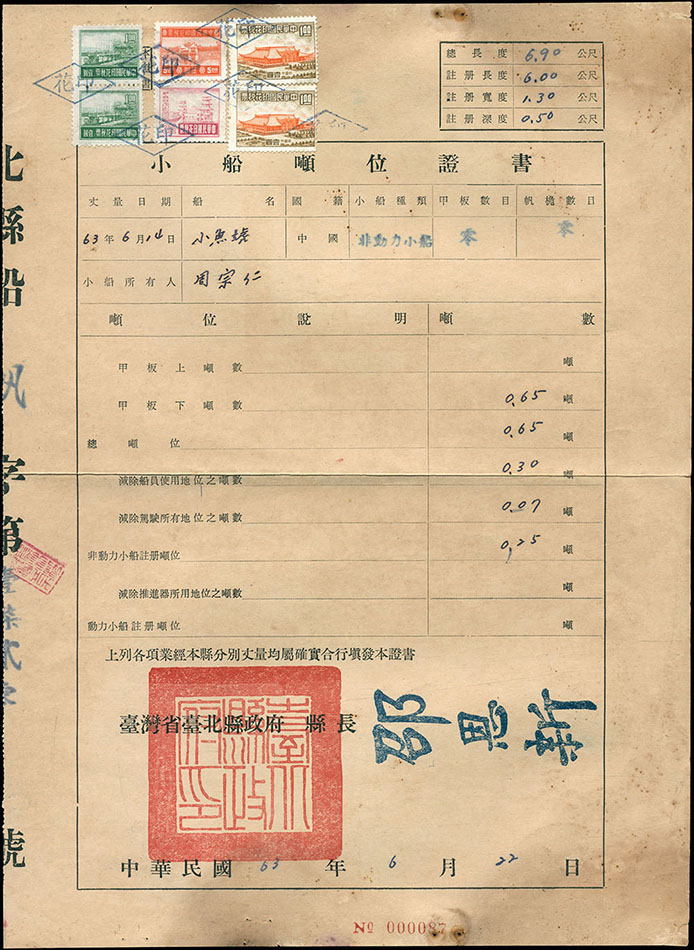 總長度 6.90 公尺
註册長度 6.00 公尺
註册寬度 1.30 公尺
註册深度 0.50 公尺
花印
花印
花印
花印
花印
小船噸位證書
丈量日期 船名 國籍 小船種類 甲板數目 帆桅數目
63年6月14日 中國 非動力小船 零 零
小船所有人 周宗仁
噸位說明 噸數
甲板上噸數 噸
甲板下噸數 0.65 噸
總噸位 0.65 噸
減除船員使用地位之噸數 0.30 噸
減除駕駛所有地位之噸數 0.07 噸
非動力小船註册噸位 0.25 噸
減除推進器所用地位之噸數 噸
動力小船註册噸位 噸
上列各項業經本縣分別丈量均屬確實合行填發本證書
臺灣省臺北縣政府 縣長 邵恩新
臺北縣政府印
中華民國 63 年 6 月 22 日
北縣船帆字第壹柒貳 號
№ 000087